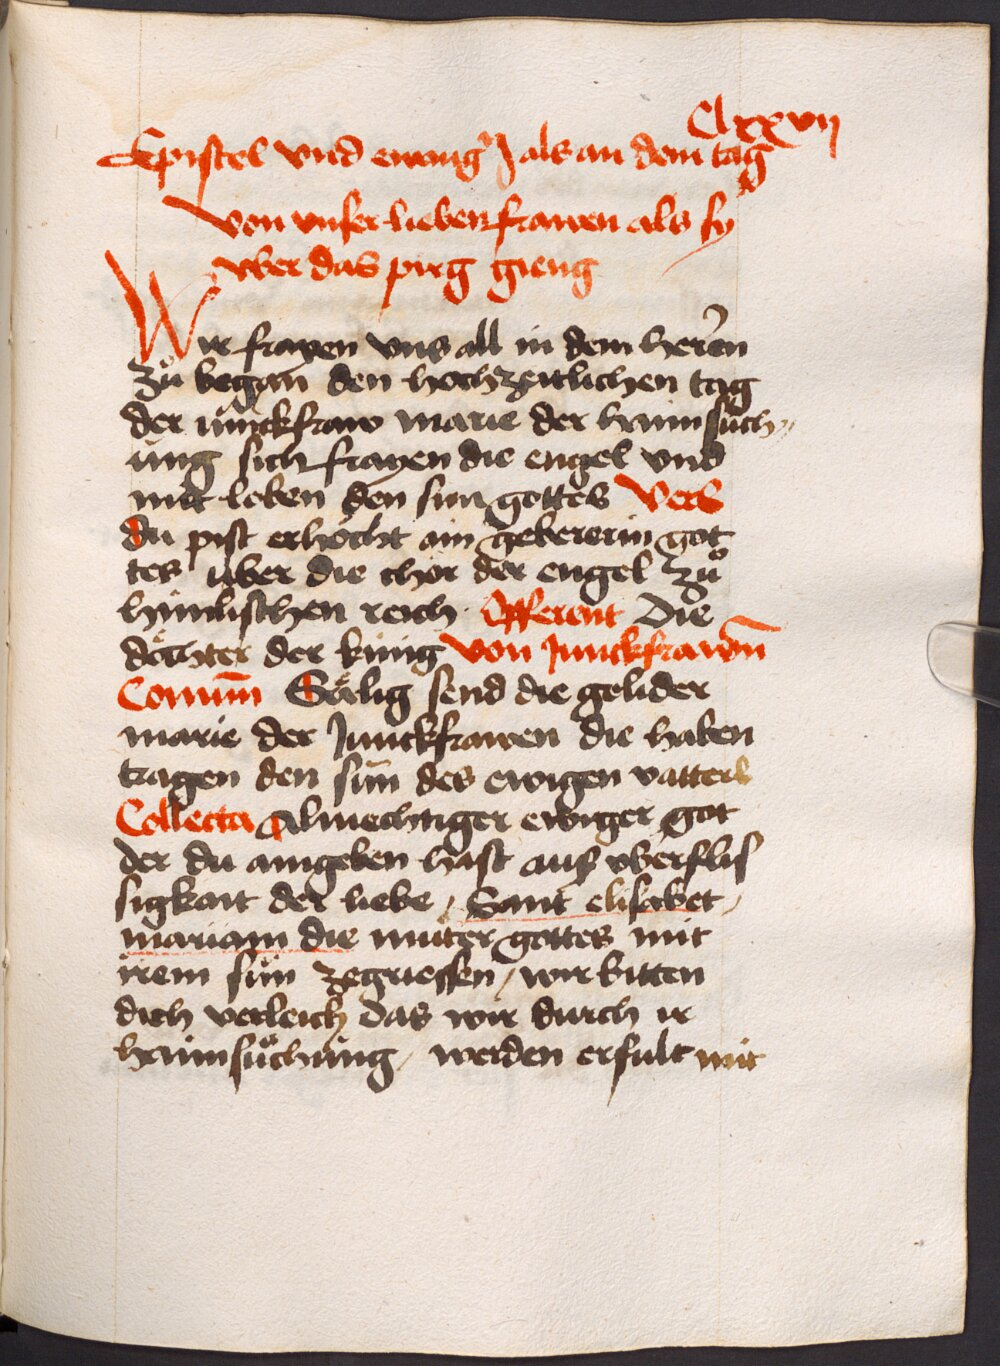 Clxxvij
Epistel vnd ewang̉ J als an dem tag
von vnser lieben frawen als sy
vber das pirg gieng
Wir frayen vns all in dem heren̉
zů began den hochzeitlichen tag
der junckfraw marie der haimsůch〃
ung sich frayen die engel vnd
mit loben den sun gottes Vers
du pist erhöcht ain gebererin got
tes über die chör der engel zů
himlischen reich. Offerent Die
döchter der künig von junckfrawen̄
Comun̄ Sälig send die gelider
marie der Junckfrawen die haben
tragen den sun̄ des ewigen vatters
Collecta Almechtiger ewiger got
der du aingeben hast auß vberflis
sigkait der liebe / Sant elisabet /
mariam die muter gottes mit
irem sün zegriessen / wir bitten
dich verleich das wir durch ir
haimsůchung / werden erfult mit